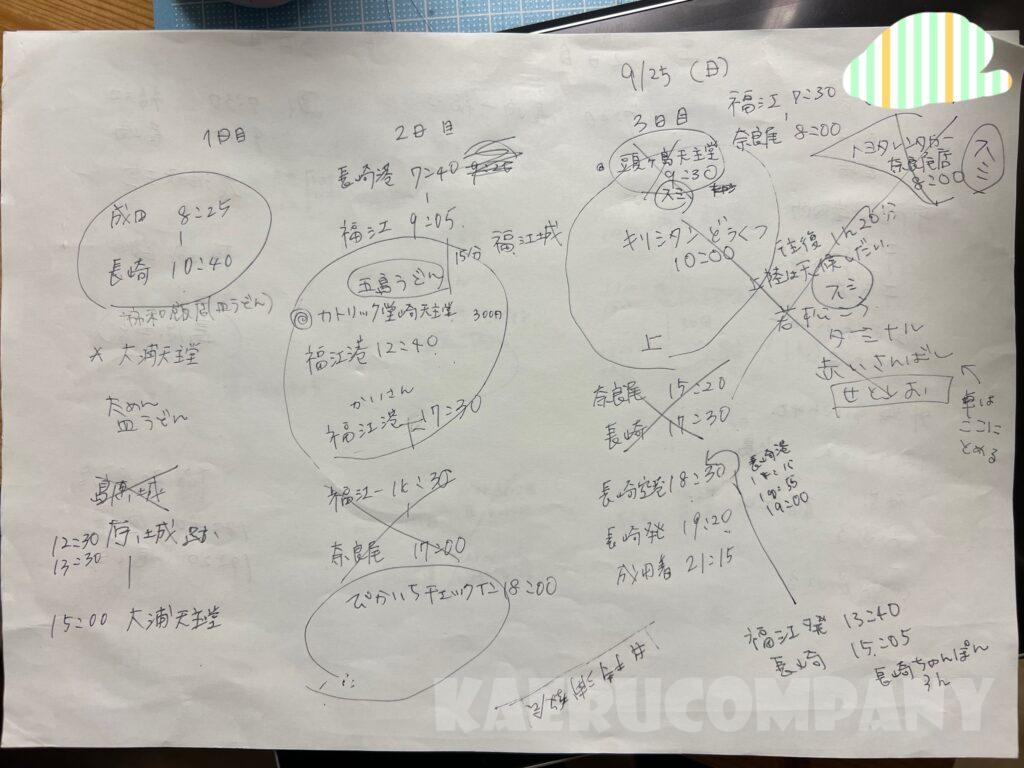 1日目
成田 8:25
長崎 10:40
飯店(皿うどん)
× 大浦天主堂
太めん
皿うどん
島原城
12:30
13:30
15:00 大浦天主堂
2日目
長崎港 7:40
福江 9:05
15分
福江城
五島うどん
◎カトリック堂崎天主堂 300円
福江港 12:40
かいさん
福江港 17:30
福江
奈良尾 17:00
ぴかいちチェックイン 18:00
9/25 (日)
3日目
頭ヶ島天主堂
9:30
スミ
キリシタンどうくつ
10:00
上
奈良尾 15:20
長崎 17:30
長崎空港 18:30
長崎発 19:20
成田着 21:15
長崎港
19:00
福江発 13:40
長崎 15:05
長崎ちゃんぽん
福江 7:30
奈良尾 8:00
トヨタレンタカー
奈良尾店
8:00
スミ
往復
スミ
ターミナル
せととよお
車は
ここに
とめる
KAERUCOMPANY